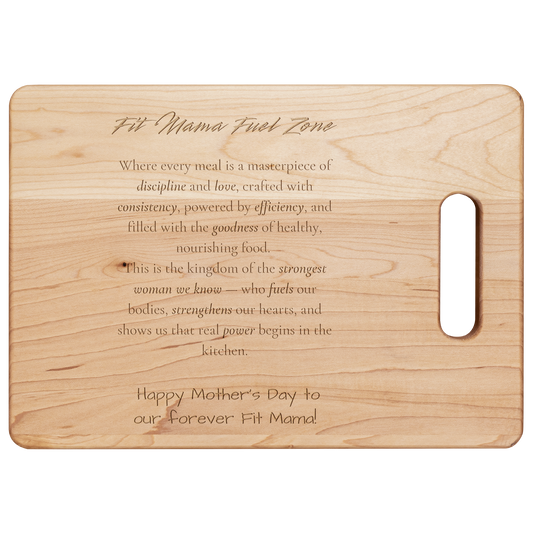 Fit Mama Fuel Zone
Where every meal is a masterpiece of
discipline and love, crafted with
consistency, powered by efficiency, and
filled with the goodness of healthy,
nourishing food.
This is the kingdom of the strongest
woman we know — who fuels our
bodies, strengthens our hearts, and
shows us that real power begins in the
kitchen.
Happy Mother's Day to
our forever Fit Mama!